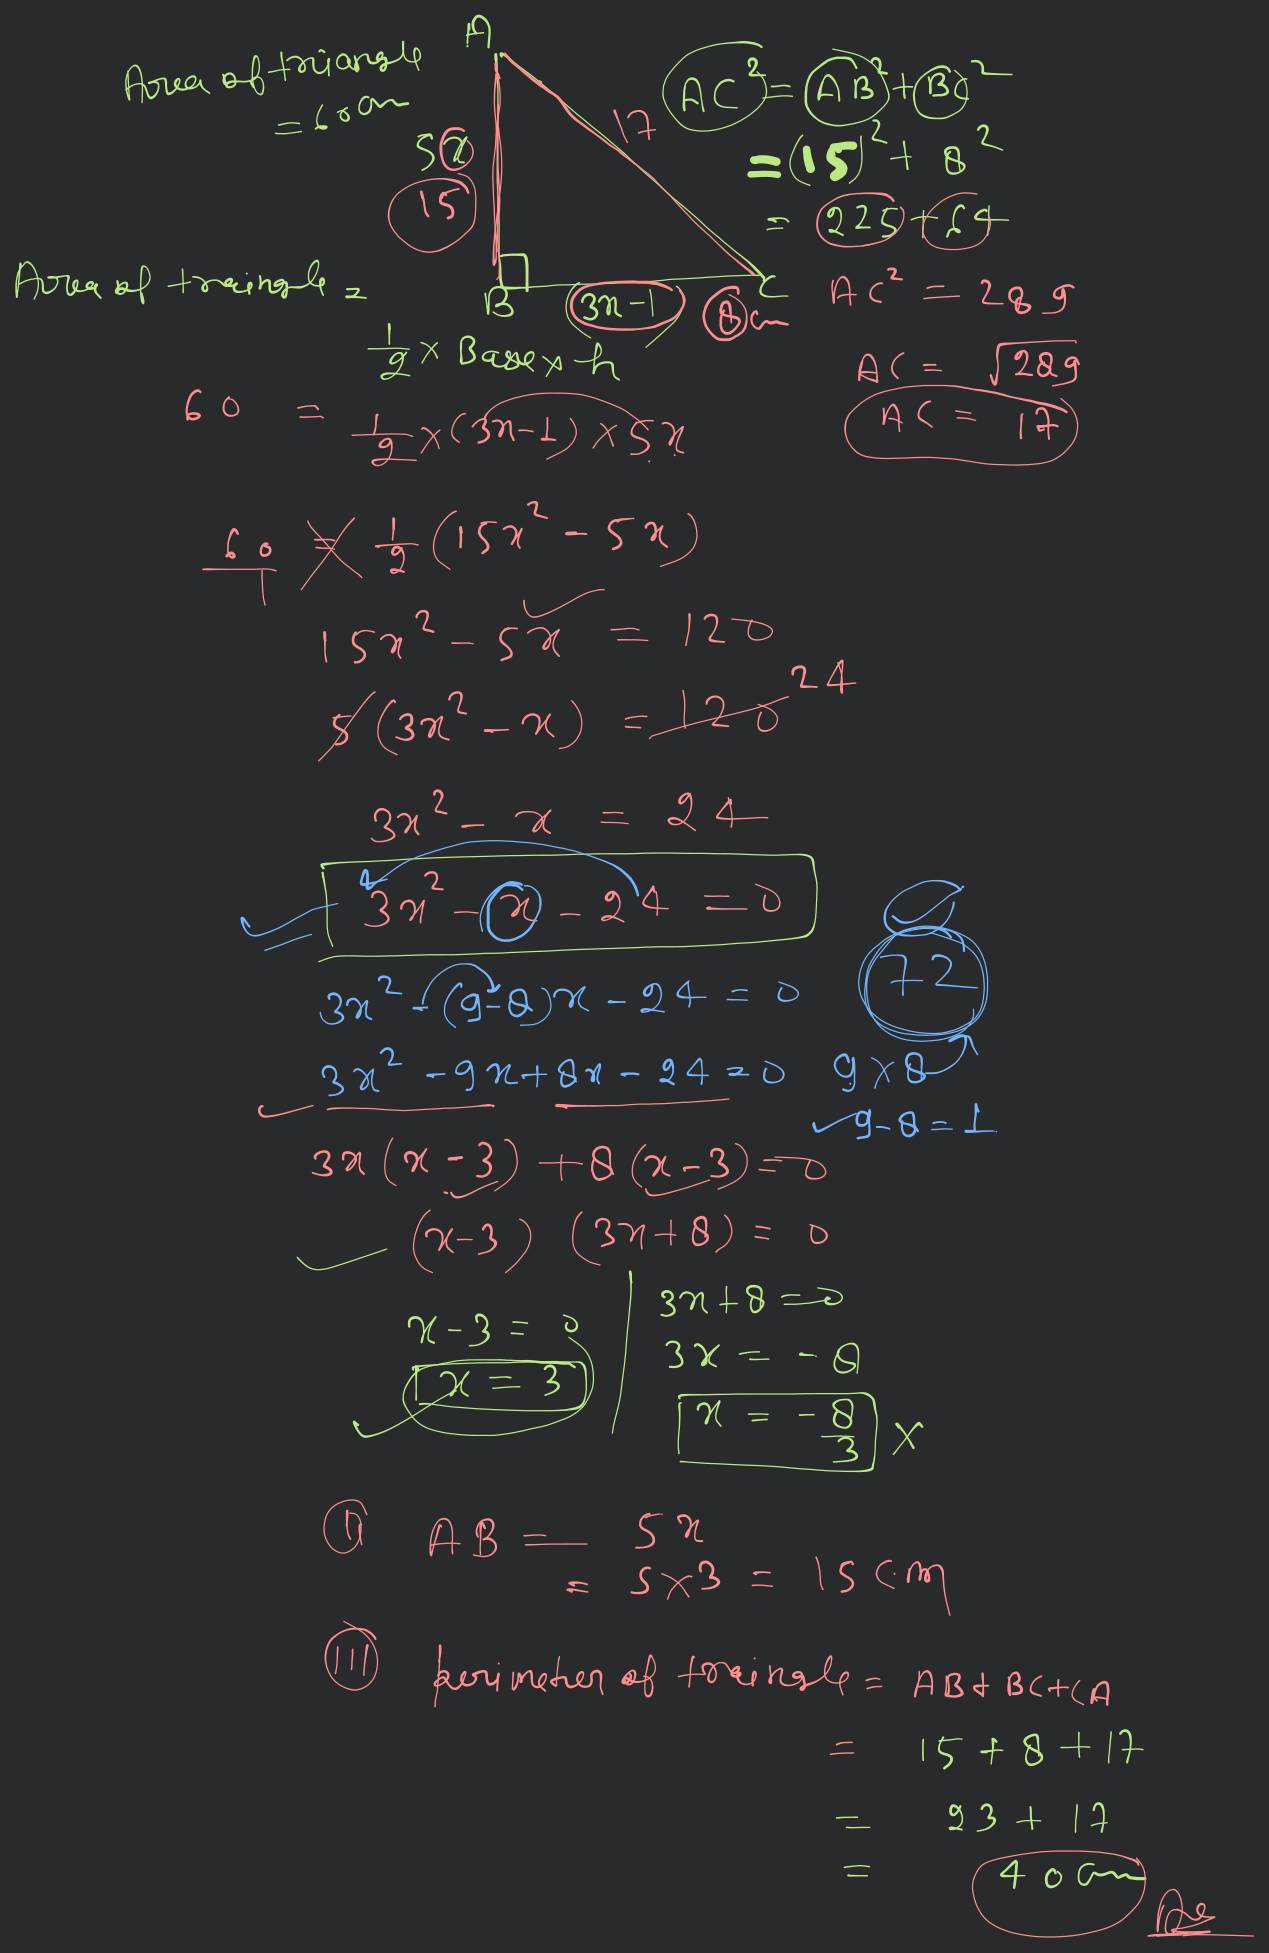 A
Area of triangle
= 60 cm
5x
15
17
B
3x-1
8 cm
C
AC² = AB² + BC²
= (15)² + 8²
= 225 + 64
AC² = 289
AC = √289
AC = 17
Area of traingle =
1/2 × Base × h
60 = 1/2 × (3x-1) × 5x
60/1 = 1/2 (15x² - 5x)
15x² - 5x = 120
5 (3x² - x) = 120 24
3x² - x = 24
3x² - x - 24 = 0
3x² - (9-8)x - 24 = 0
3x² - 9x + 8x - 24 = 0
72
9 × 8
9-8 = 1
3x (x - 3) + 8 (x - 3) = 0
(x-3) (3x+8) = 0
x - 3 = 0
x = 3
3x + 8 = 0
3x = - 8
x = - 8/3 ×
(ii) AB = 5x
= 5×3 = 15 cm
(iii) perimeter of traingle = AB + BC + CA
= 15 + 8 + 17
= 23 + 17
= 40 cm